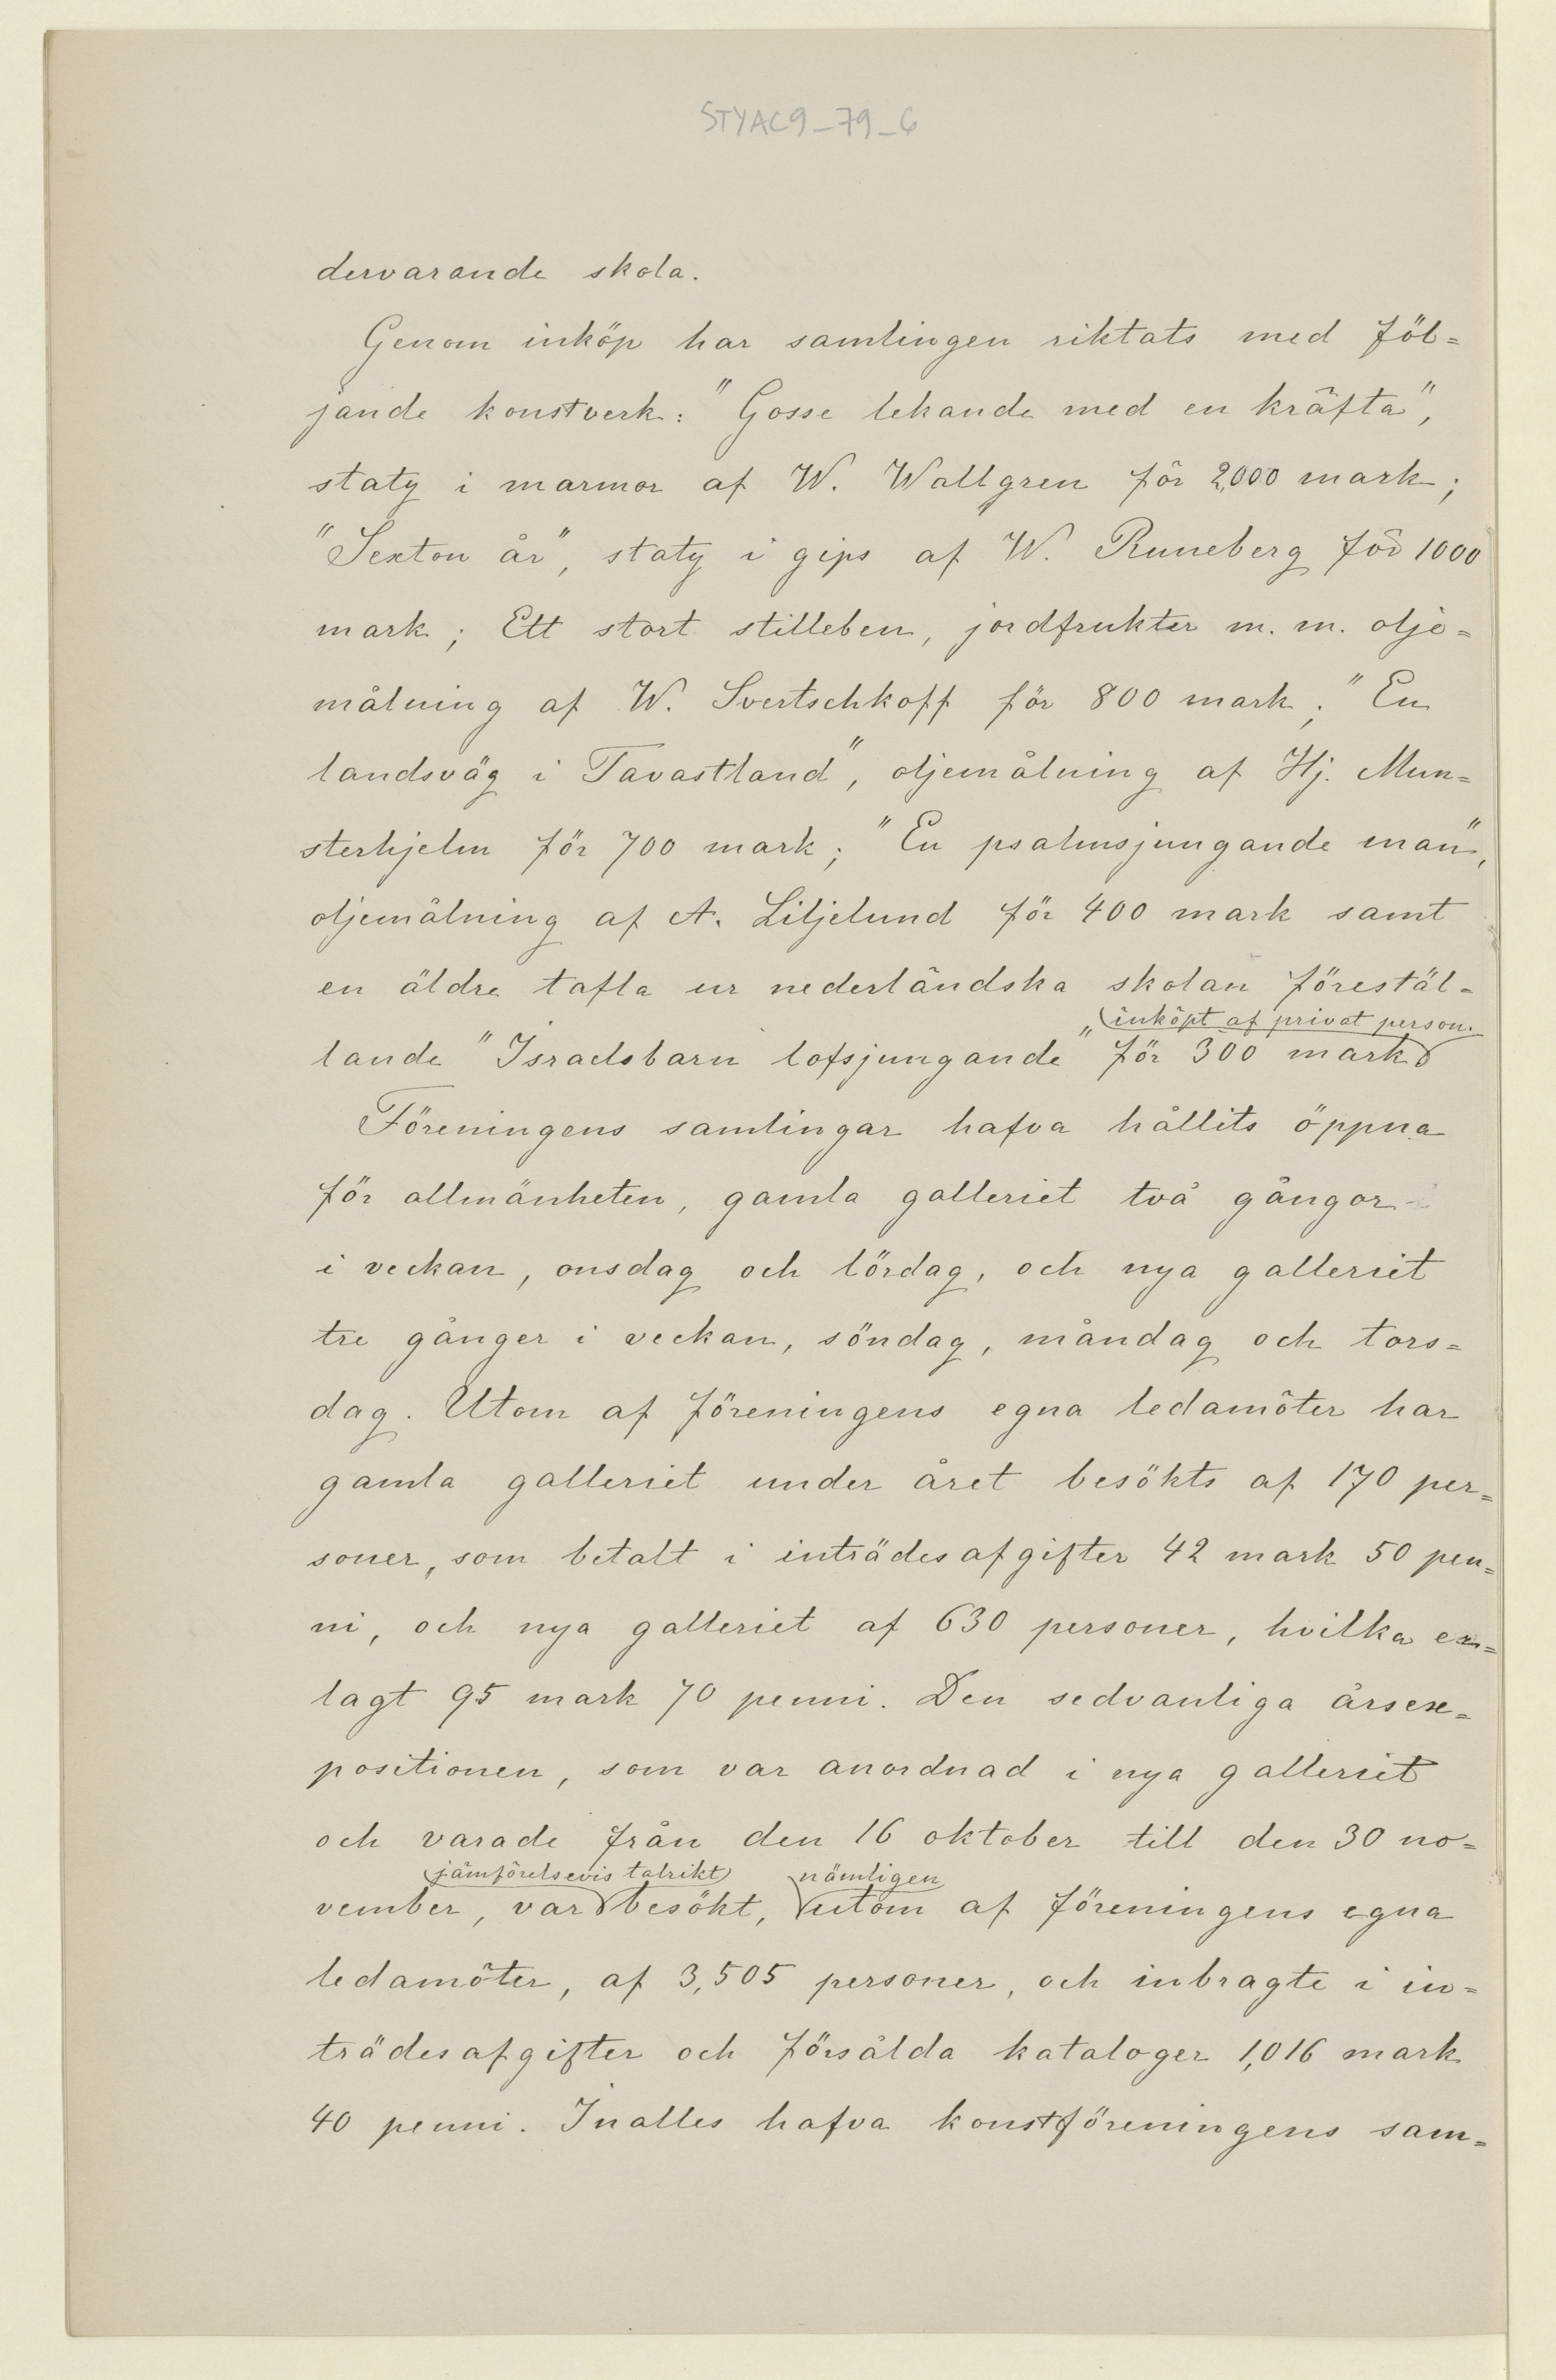 STYAC9_79_6
dervarande skola.
Genom inköp har samlingen riktats med föl=
jande konstverk: "Gosse lekande med en kräfta",
staty i marmor af W. Wallgren för 2,000 mark;
"Sexton år", staty i gips af W. Runeberg för 1000
mark; Ett stort stilleben, jordfrukter m. m. olje=
målning af W. Svertschkoff för 800 mark; "En
landsväg i Tavastland", oljemålning af Hj. Mun=
sterhjelm för 700 mark; "En psalmsjungande man",
oljemålning af A. Liljelund för 400 mark samt
en äldre tafla ur nederländska skolan förestäl=
inköpt af privat person.
lande "Israelsbarn lofsjungande" för 300 mark
Föreningens samlingar hafva hållits öppna
för allmänheten, gamla galleriet två gångor
i veckan, onsdag och lördag, och nya galleriet
tre gånger i veckan, söndag, måndag och tors=
dag. Utom af föreningens egna ledamöter har
gamla galleriet under året besökts af 170 per=
soner, som betalt i inträdesafgifter 42 mark 50 pen=
ni, och nya galleriet af 630 personer, hvilka er=
lagt 95 mark 70 penni. Den sedvanliga årsex=
positionen, som var anordnad i nya galleriet
och varade från den 16 oktober till den 30 no=
jämförelsevis talrikt nämligen
vember, var besökt, utom af föreningens egna
ledamöter, af 3,505 personer, och inbragte i in=
trädesafgifter och försålda kataloger 1,016 mark
40 penni. Inalles hafva konstföreningens sam=